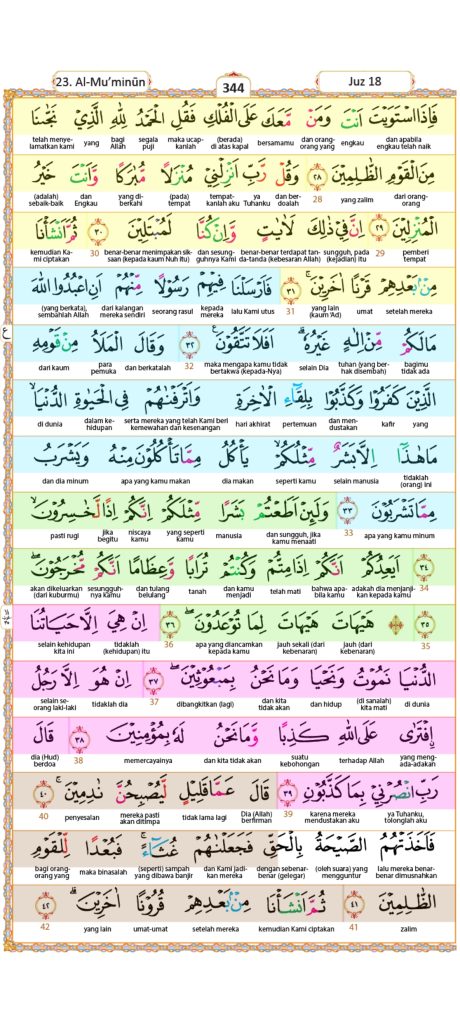 23. Al-Mu’minūn
344
Juz 18
فَاِذَا اسْتَوَيْتَ اَنْتَ وَمَنْ مَّعَكَ عَلَى الْفُلْكِ فَقُلِ الْحَمْدُ لِلّٰهِ الَّذِيْ نَجّٰىنَا
dan apabila engkau telah naik engkau dan orang-orang yang bersamamu (berada) di atas kapal maka ucap-kanlah segala puji bagi Allah yang telah menye-lamatkan kami
مِنَ الْقَوْمِ الظّٰلِمِيْنَ ٢٨ وَقُلْ رَّبِّ اَنْزِلْنِيْ مُنْزَلًا مُّبٰرَكًا وَّاَنْتَ خَيْرُ
dari orang-orang yang zalim 28 dan ber-doalah ya Tuhanku tempat-kanlah aku (pada) tempat yang di-berkahi dan Engkau (adalah) sebaik-baik
الْمُنْزِلِيْنَ ٢٩ اِنَّ فِيْ ذٰلِكَ لَاٰيٰتٍ وَّاِنْ كُنَّا لَمُبْتَلِيْنَ ٣٠ ثُمَّ اَنْشَأْنَا
pemberi tempat 29 sungguh, pada (kejadian) itu benar-benar terdapat tan-da-tanda (kebesaran Allah) dan sesung-guhnya Kami benar-benar menimpakan sik-saan (kepada kaum Nuh itu) 30 kemudian Ka-mi ciptakan
مِنْۢ بَعْدِهِمْ قَرْنًا اٰخَرِيْنَ ٣١ فَاَرْسَلْنَا فِيْهِمْ رَسُوْلًا مِّنْهُمْ اَنِ اعْبُدُوا اللّٰهَ
setelah mereka umat yang lain (kaum ‘Ad) 31 lalu Kami utus kepada mereka seorang rasul dari kalangan mereka sendiri (yang berkata), sembahlah Allah
مَا لَكُمْ مِّنْ اِلٰهٍ غَيْرُهٗ اَفَلَا تَتَّقُوْنَ ٣٢ وَقَالَ الْمَلَاُ مِنْ قَوْمِهِ
bagimu tidak ada tuhan (yang ber-hak disembah) selain Dia maka mengapa kamu tidak bertakwa (kepada-Nya) 32 dan berkatalah para pemuka dari kaum
الَّذِيْنَ كَفَرُوْا وَكَذَّبُوْا بِلِقَاۤءِ الْاٰخِرَةِ وَاَتْرَفْنٰهُمْ فِى الْحَيٰوةِ الدُّنْيَا
yang kafir dan men-dustakan pertemuan hari akhirat serta mereka yang telah Kami beri kemewahan dan kesenangan dalam ke-hidupan di dunia
مَا هٰذَآ اِلَّا بَشَرٌ مِّثْلُكُمْ يَأْكُلُ مِمَّا تَأْكُلُوْنَ مِنْهُ وَيَشْرَبُ
tidaklah (orang) ini selain manusia seperti kamu dia makan apa yang kamu makan dan dia minum
مِمَّا تَشْرَبُوْنَ ٣٣ وَلَىِٕنْ اَطَعْتُمْ بَشَرًا مِّثْلَكُمْ اِنَّكُمْ اِذًا لَّخٰسِرُوْنَ
apa yang kamu minum 33 dan sungguh, jika kamu menaati manusia yang seperti kamu niscaya kamu jika begitu pasti rugi
٣٤ اَيَعِدُكُمْ اَنَّكُمْ اِذَا مِتُّمْ وَكُنْتُمْ تُرَابًا وَّعِظَامًا اَنَّكُمْ مُّخْرَجُوْنَ
34 adakah dia menjanji-kan kepada kamu bahwa apa-bila kamu telah mati dan kamu menjadi tanah dan tulang belulang sesungguh-nya kamu akan dikeluarkan (dari kuburmu)
٣٥ هَيْهَاتَ هَيْهَاتَ لِمَا تُوْعَدُوْنَ ٣٦ اِنْ هِيَ اِلَّا حَيَاتُنَا
35 jauh (dari kebenaran) jauh sekali (dari kebenaran) apa yang diancamkan kepada kamu 36 tidaklah (kehidupan) itu selain kehidupan kita ini
الدُّنْيَا نَمُوْتُ وَنَحْيَا وَمَا نَحْنُ بِمَبْعُوْثِيْنَ ٣٧ اِنْ هُوَ اِلَّا رَجُلٌ
di dunia (di sanalah) kita mati dan hidup dan kita tidak dibangkitkan (lagi) 37 tidaklah dia selain se-orang laki-laki
افْتَرٰى عَلَى اللّٰهِ كَذِبًا وَّمَا نَحْنُ لَهٗ بِمُؤْمِنِيْنَ ٣٨ قَالَ
yang meng-ada-adakan terhadap Allah suatu kebohongan dan kita tidak akan memercayainya 38 dia (Hud) berdoa
رَبِّ انْصُرْنِيْ بِمَا كَذَّبُوْنِ ٣٩ قَالَ عَمَّا قَلِيْلٍ لَّيُصْبِحُنَّ نٰدِمِيْنَ ٤٠
ya Tuhanku, tolonglah aku karena mereka mendustakan aku 39 Dia (Allah) berfirman tidak lama lagi mereka pasti akan ditimpa penyesalan 40
فَاَخَذَتْهُمُ الصَّيْحَةُ بِالْحَقِّ فَجَعَلْنٰهُمْ غُثَاۤءً فَبُعْدًا لِّلْقَوْمِ
lalu mereka benar-benar dimusnahkan (oleh suara) yang mengguntur dengan sebenar-benar (gelegar) dan Kami jadi-kan mereka (seperti) sampah yang dibawa banjir maka binasalah bagi orang-orang yang
الظّٰلِمِيْنَ ٤١ ثُمَّ اَنْشَأْنَا مِنْۢ بَعْدِهِمْ قُرُوْنًا اٰخَرِيْنَ ٤٢
zalim 41 kemudian Kami ciptakan setelah mereka umat-umat yang lain 42